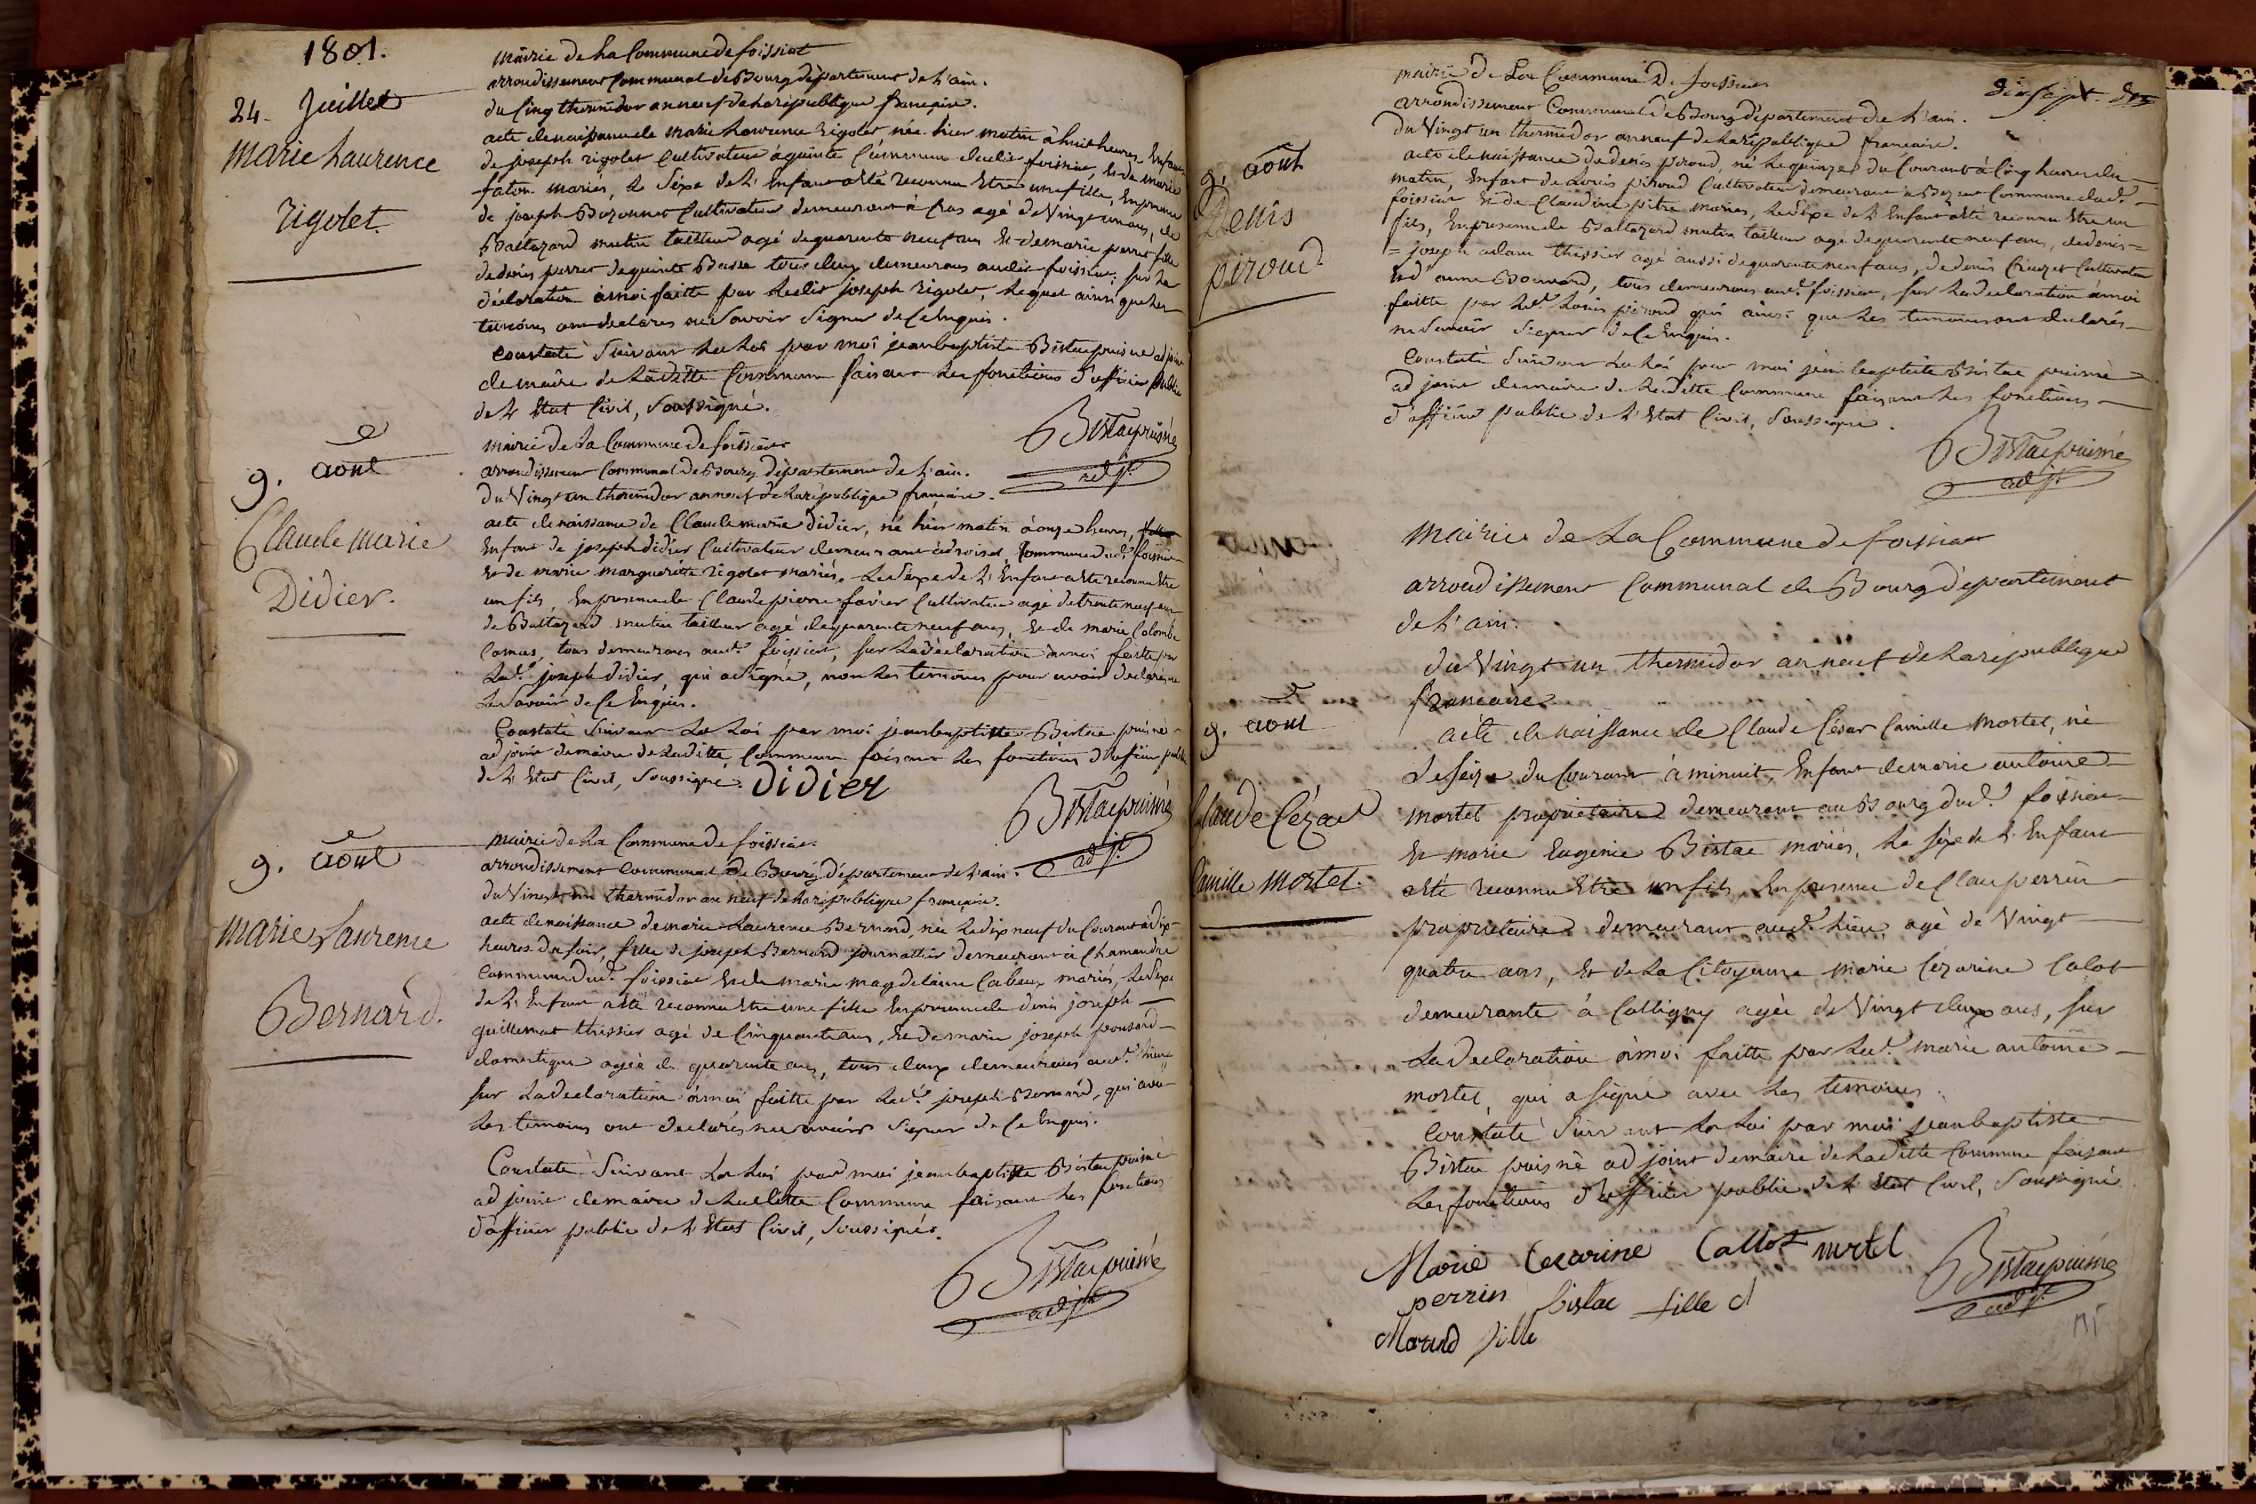 1801.
24. Juillet
Marie Laurence
Rigolet.
mairie de La Commune de foissiat
arrondissement Communal de Bourg département de L'ain.
du Cinq thermidor an neuf de La république française.
acte de naissance de marie Laurence rigolet née hier matin à huit heures, Enfant
de joseph rigolet Cultivateur à quinte Commune dudit foissiat, et de marie
faton mariés, Le Sexe de L'Enfant a été reconnu Etre une fille, En presence
de joseph Bozonnet Cultivateur demeurant à Cras agé de Vingt un ans, de
Baltazard mutin tailleur agé de quarante neuf ans Et de marie perret fille
de denis perret de quinte Basse tous deux demeurans audit foissiat; sur La
déclaration à moi faitte par Ledit joseph rigolet, Lequel ainsi que Les
temoins ont declarés ne Savoir Signer de Ce Enquis.
Constaté Suivant La Loi par moi jean baptiste Bistac puisné adjoint
de maire de Laditte Commune faisant Les fonctions d'officier public
de L'Etat Civil, Soussigné.
Bistac puisné
adjt.
9. août
Claude Marie
Didier.
mairie de La Commune de foissiat
arrondissement Communal de Bourg département de L'ain.
du Vingt un thermidor an neuf de La république française.
acte de naissance de Claude marie didier, né hier matin à onze heures,
Enfant de joseph didier Cultivateur demeurant à Commune dud. foissiat
Et de marie marguerite rigolet mariés. Le Sexe de L'Enfant a été reconnu Etre
un fils, En presence de Claude pierre favier Cultivateur agé de trente neuf ans
de Baltazard mutin tailleur agé de quarante neuf ans, Et de marie Colombe
Camus, tous demeurans aud. foissiat, sur La déclaration à moi faitte par
Led. joseph didier, qui a Signé, non Les temoins pour avoir declarés ne
Le Savoir de Ce Enquis.
Constaté Suivant La Loi par moi jean baptiste Bistac puisné
adjoint de maire de Laditte Commune faisant Les fonctions d'officier public
de L'Etat Civil, Soussigné. Didier
Bistac puisné
adjt.
9. août
Marie Laurence
Bernard.
mairie de La Commune de foissiat.
arrondissement Communal de Bourg département de L'ain.
du Vingt un thermidor an neuf de La république française.
acte de naissance de marie Laurence Bernard, née Le dix neuf du Courant à dix
heures du soir, fille de joseph Bernard journallier demeurant à Chamandre
Commune dud. foissiat Et de marie magdelaine Cabeux mariés, Le Sexe
de L'Enfant a été reconnu Etre une fille En presence de denis joseph
guillemat thissier agé de Cinquante ans, Et de marie joseph ponsard
domestique agée de quarante ans, tous deux demeurans aud. Lieu
sur La declaration à moi faitte par Led. joseph Bernard, qui avec
Les temoins ont declarés ne savoir Signer de Ce Enquis.
Constaté Suivant La Loi par moi jean baptiste Bistac puisné
adjoint de maire de Laditte Commune faisant Les fonctions
d'officier public de L'Etat Civil, Soussigné.
Bistac puisné
adjt.
dix sept.
9. août
Denis
piroud
mairie de La Commune De foissiat
arrondissement Communal de Bourg département de L'ain.
du Vingt un thermidor an neuf de La république française.
acte de naissance de denis piroud, né Le quinze du Courant à Cinq heures du
matin, Enfant de Louis piroud Cultivateur demeurant à Commune dud.
foissiat Et de Claudine pitre mariés, Le Sexe de L'Enfant a été reconnu Etre un
fils, En presence de Baltazard mutin tailleur agé de quarante neuf ans, de denis
joseph adam thissier agé aussi de quarante neuf ans, de denis Cultivateur
Et d'anne Bornard, tous demeurans aud. foissiat, sur La declaration à moi
faitte par Led. Louis piroud qui ainsi que Les temoins ont declarés
ne Savoir Signer de Ce Enquis.
Constaté Suivant La Loi par moi jean baptiste Bistac puisné
adjoint de maire de Laditte Commune faisant Les fonctions
d'officier public de L'Etat Civil, Soussigné.
Bistac puisné
adjt.
9. août
Claude Cézar
Camille Mortel.
Mairie de La Commune de foissiat
arrondissement Communal de Bourg département
de L'ain.
du Vingt un thermidor an neuf de La république
française
acte de naissance de Claude César Camille Mortel, né
Le seize du Courant à minuit, Enfant de marie antoine
mortel propriétaire demeurant au Bourg dud. foissiat
Et marie Eugénie Bistac mariés, Le sexe de L'Enfant
a été reconnu Etre un fils, En presence de Clau perrin
propriétaire demeurant aud. Lieu, agé de Vingt
quatre ans, Et de La Citoyenne marie Cezarine Calot
demeurante à Colligny agée de Vingt deux ans, sur
La declaration à moi faitte par Led. marie antoine
mortel, qui a signé avec Les temoins.
Constaté Suivant La Loi par moi jean baptiste
Bistac puisné adjoint de maire de Laditte Commune faisant
Les fonctions d'officier public de L'Etat Civil, Soussigné
Marie Cezarine Callot mortel
perrin Bistac fille
Morand fille
Bistac puisné
adjt.